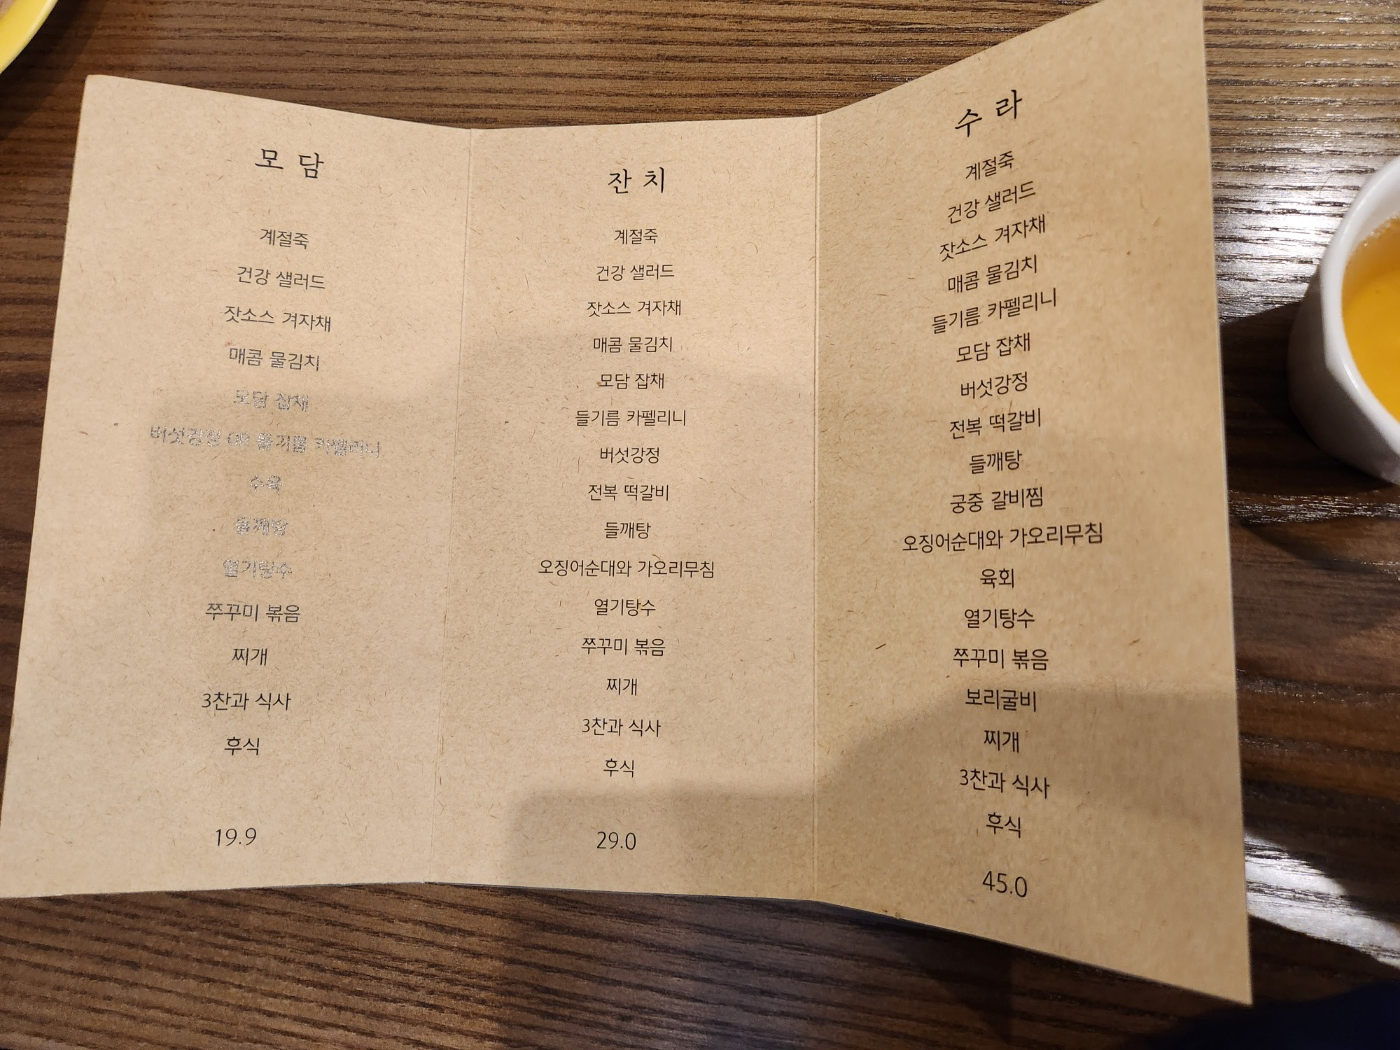 모 담
계절죽
건강 샐러드
잣소스 겨자채
매콤 물김치
모담 잡채
버섯강정 OR 들기름 카펠리니
수육
들깨탕
열기탕수
쭈꾸미 볶음
찌개
3찬과 식사
후식
19.9
잔 치
계절죽
건강 샐러드
잣소스 겨자채
매콤 물김치
모담 잡채
들기름 카펠리니
버섯강정
전복 떡갈비
들깨탕
오징어순대와 가오리무침
열기탕수
쭈꾸미 볶음
찌개
3찬과 식사
후식
29.0
수 라
계절죽
건강 샐러드
잣소스 겨자채
매콤 물김치
들기름 카펠리니
모담 잡채
버섯강정
전복 떡갈비
들깨탕
궁중 갈비찜
오징어순대와 가오리무침
육회
열기탕수
쭈꾸미 볶음
보리굴비
찌개
3찬과 식사
후식
45.0